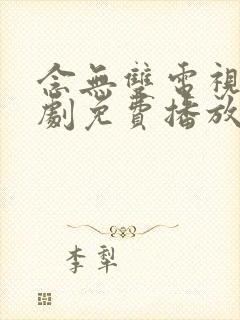 念無雙電視
劇免費播放
李犁